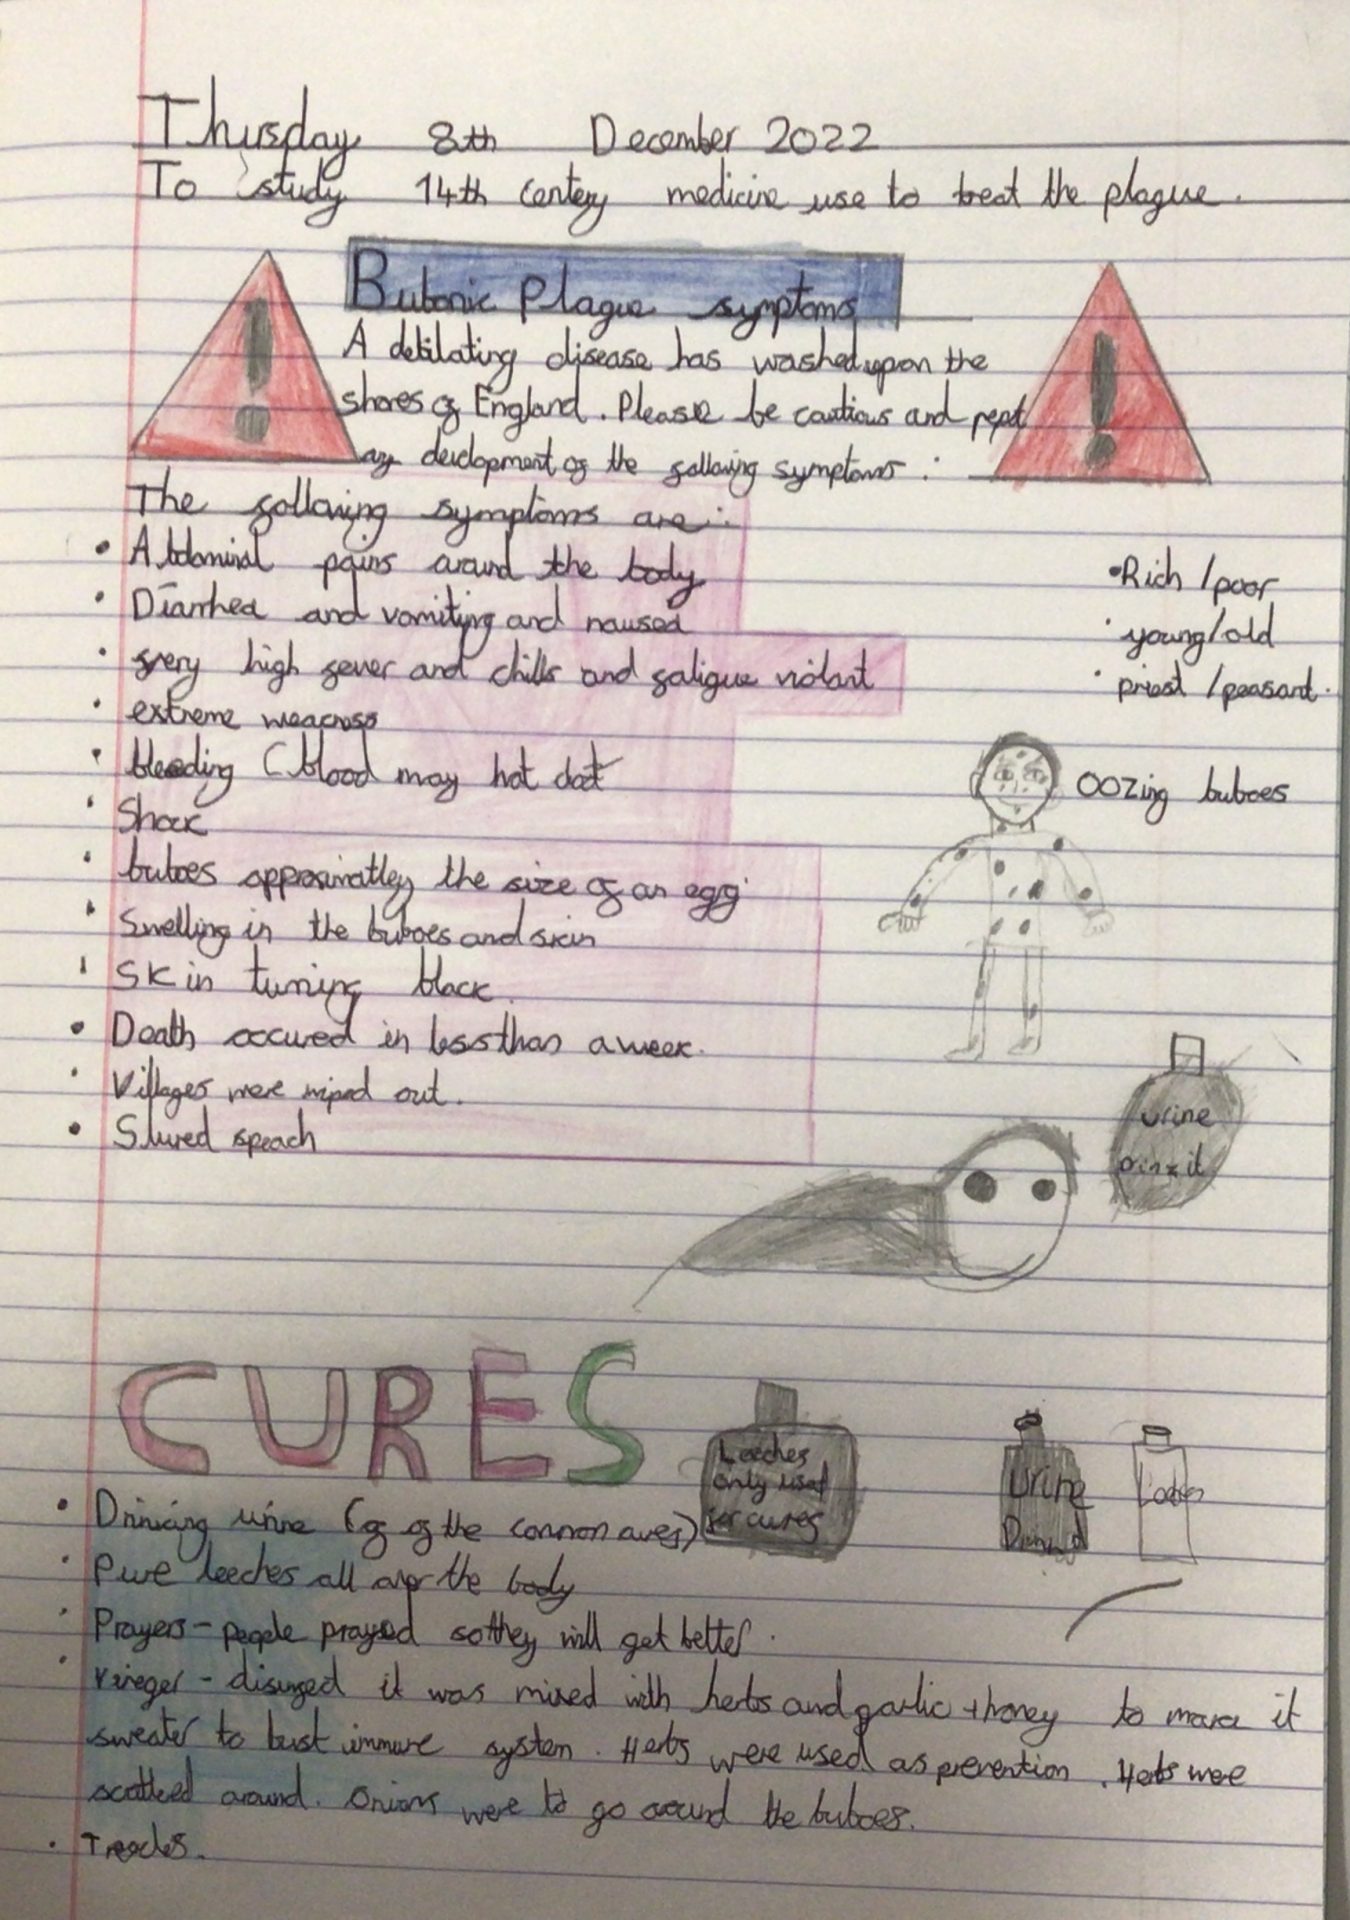 Thursday 8th December 2022
To study 14th centery medicine use to treat the plague.
Bubonic Plague symptoms
A debilating disease has washed upon the
shores of England. Please be cautious and
any development of the following symptoms:
The following symptoms are:
• Abdominal pains around the body
• Diarrhea and vomiting and nausea
• very high fever and chills and fatigue violant
• extreme
• bleeding (blood may not clot
• Shock
• buboes approximatley the size of an egg
• Swelling in the buboes and skin
• Skin turning black.
• Death occured in less than a week.
• Villages were wiped out.
• Slured speach
• Rich / poor
• young/old
• priest / peasant.
Oozing buboes
urine
Drink it
CURES
Leeches
only used
for cures
Urine
• Drinking urine ( of the common
• leeches all over the body
• Prayers - people prayed so they will get better.
• - it was mixed with herbs and garlic + honey to make it
sweater to bust immune system. Herbs were used as prevention. Herbs were
around. Onions were to go around the buboes.